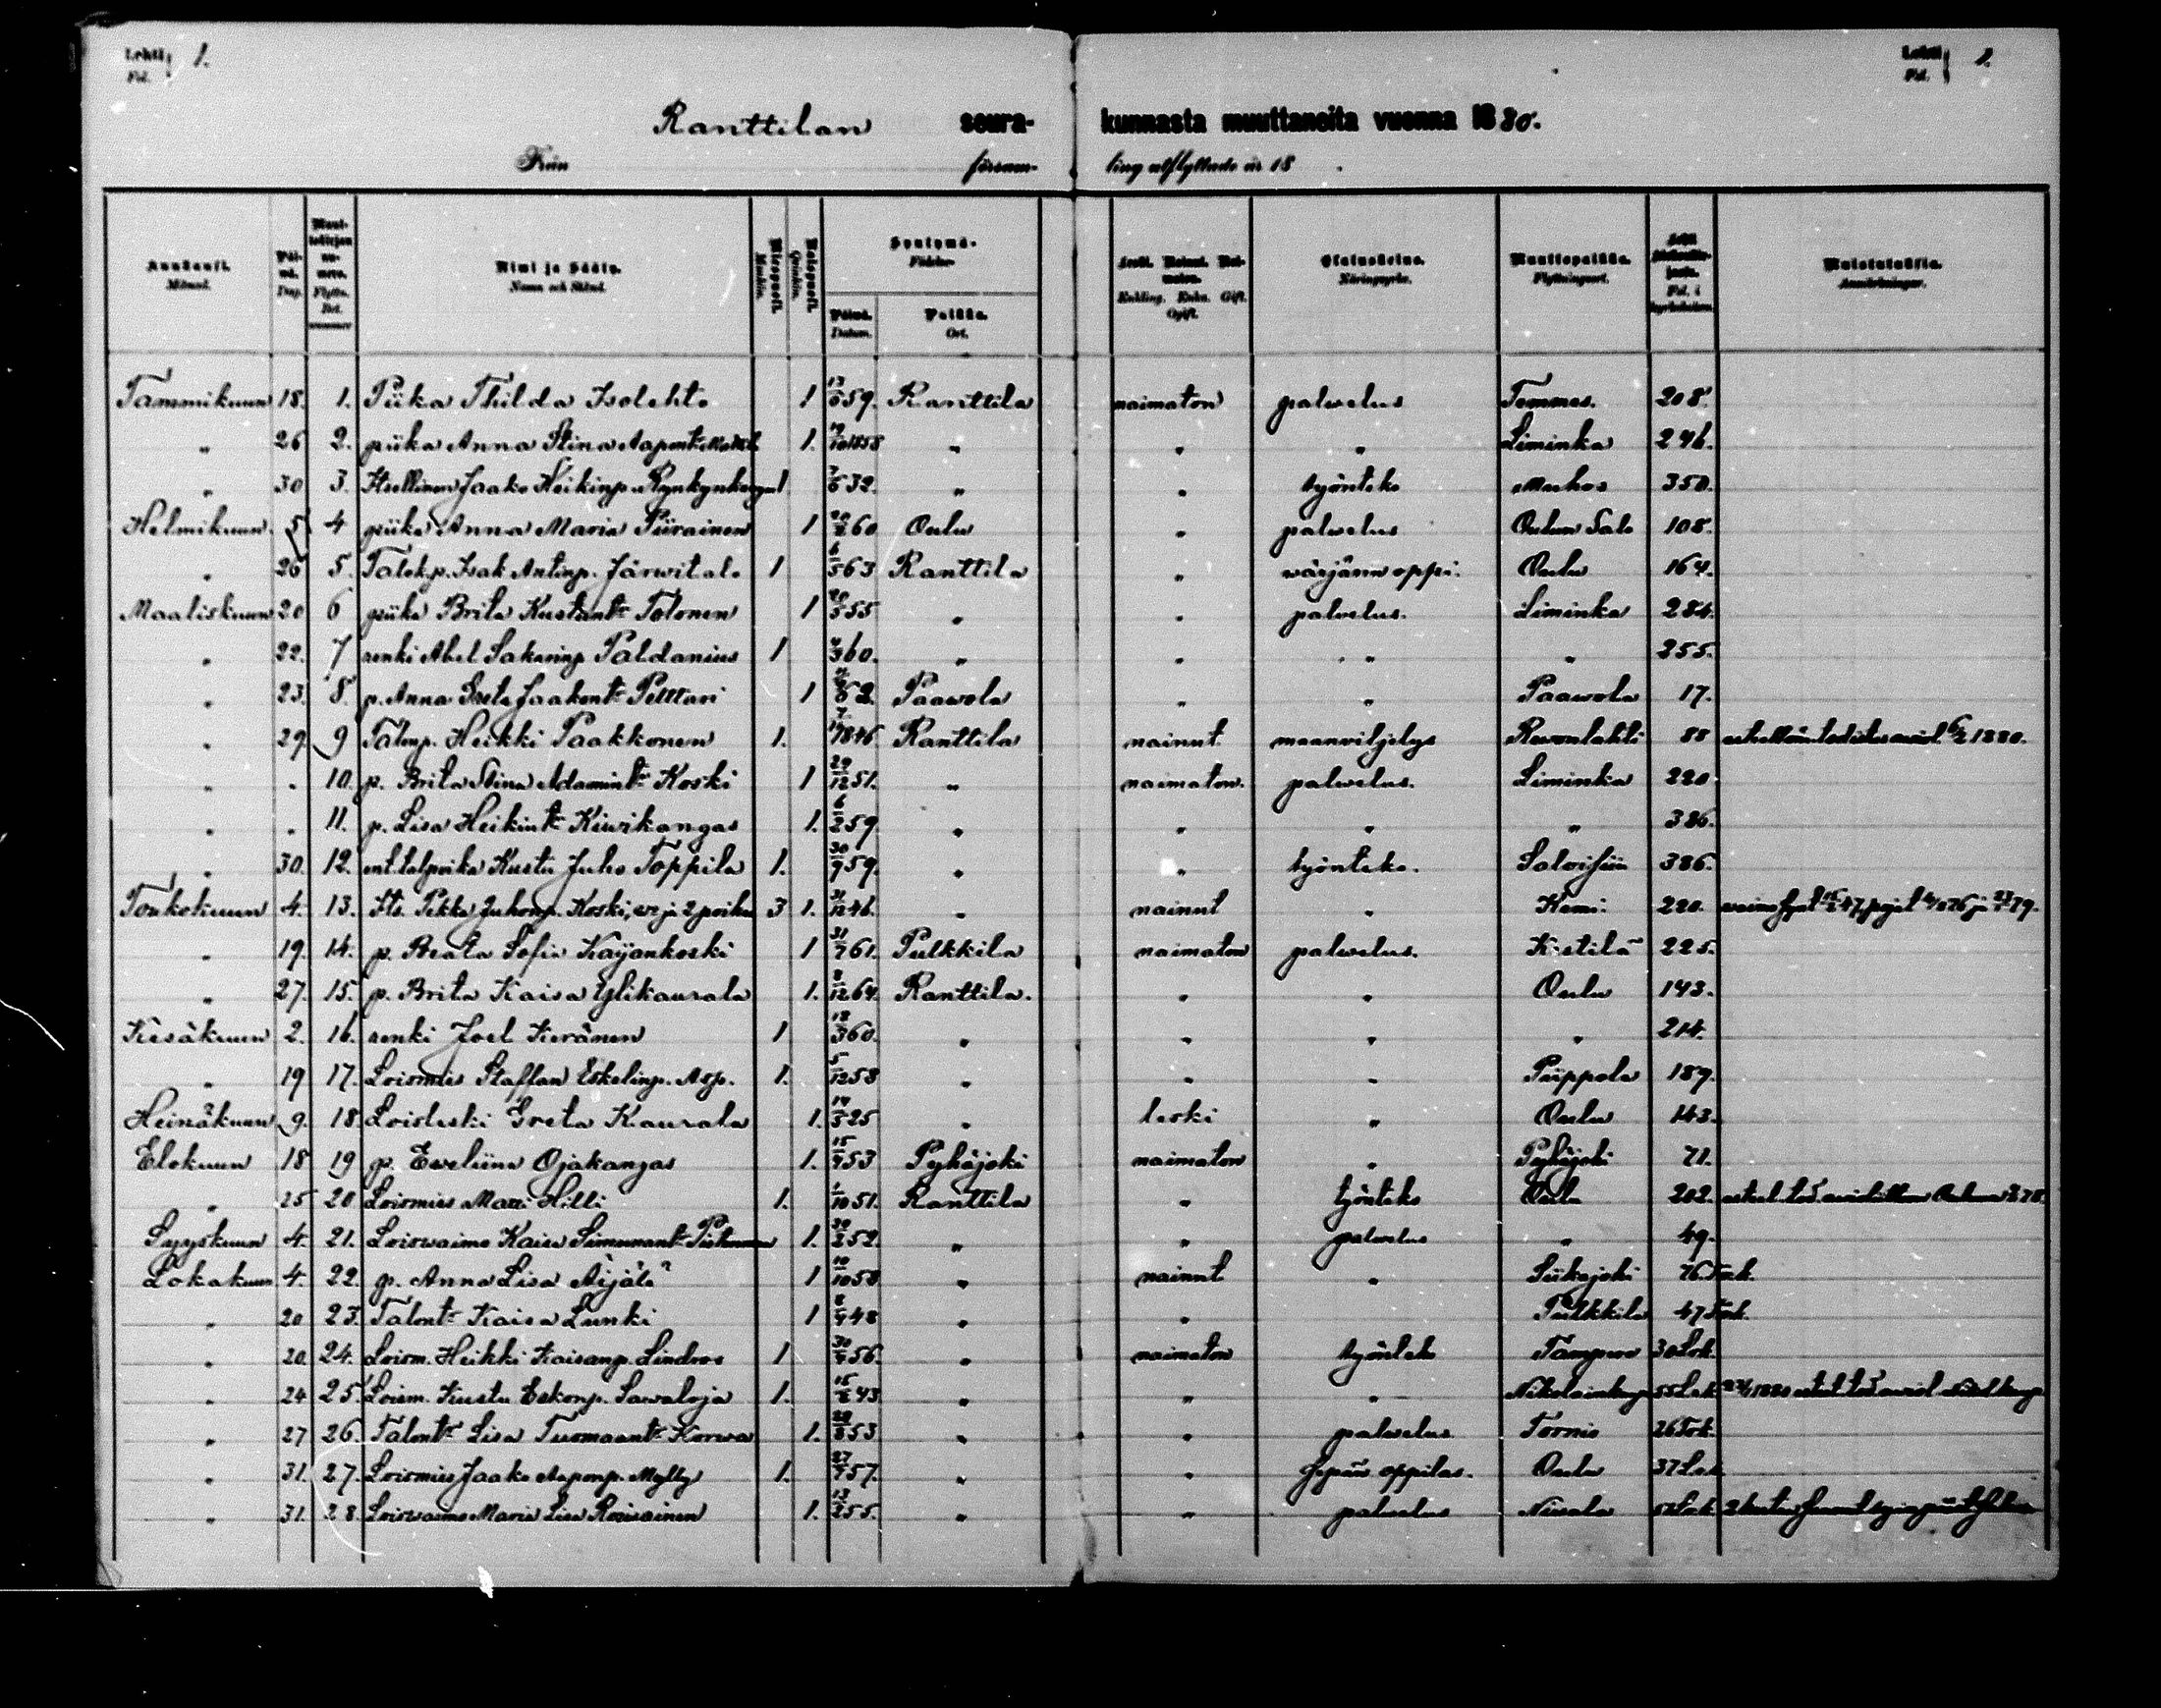 Lehti Fol. 1.
Lehti Fol. 1.
Ranttilan seura- kunnasta muuttaneita vuonna 1880.
Från försam- ling utflyttade år 18 .
Kuukausi. Månad. Päi- vä. Dag. Nimi ja Sääty. Namn och Stånd. Miespuoli. Mankön. Naispuoli. Qvinkön. Syntymä- Födelse- Päivä. Datum. Paikka. Ort. Leski. Enkling. Enka. Gift. Ogift. Elatuskeino. Näringsgren. Muuttopaikka. Flyttningsort. Muistutuksia. Anmärkningar.
Tammikuun 18. 1. Piika Thilda Isolehto 1 59. Ranttila naimaton palvelus Temmes. 208.
" 26 2. piika Anna Stina 1. 1858 " " " Liminka 246.
" 30 3. Itsellinen Jaako Heikinp. 1 32. " " työnteko Muhos 350.
Helmikuun 5 4 piika Anna Maria Piirainen 1 60 Oulu " palvelus Oulun Salo 108.
" 26 5. Talok.p. Isak Antinp. Järwitalo 1 6/5 63 Ranttila " wärjärin oppi. Oulu 164.
Maaliskuun 20 6 piika Brita Kustant. Tolonen 1 55 " " palvelus. Liminka 284.
" 22. 7 renki Abel Sakarinp Paldanius 1 60. " " " " 255.
" 23. 8. p. Anna Jaakont. Pelttari 1 62. Paawola " " Paawola 17.
" 29. 9 Talonp. Heikki Paakkonen 1. 1846 Ranttila nainut maanviljelys Revonlahti 88 1880.
" " 10. p. Brita Stina Adamint. Koski 1 29/12 51. " naimaton. palvelus. Liminka 220.
" " 11. p. Lisa Heikint. Kiwikangas 1. 6/2 59 " " " " 386.
" 30. 12. Kustu Juho Toppila 1. 30/9 59. " " työnteko. 386.
Toukokuun 4. 13. Its. Pekka Juhonp. Koski, w. ja 2 poikaa 3 1. 31/12 46. " nainut " Kemi. 220.
" 19. 14. p. Beata Sofia Kaijankoski 1 31/7 61. Pulkkila naimaton palvelus. Kestilä 225.
" 27. 15. p. Brita Kaisa Ylikaurala 1. 8/12 64. Ranttila. " " Oulu 143.
Kesäkuun 2. 16. renki Joel Keränen 1 18/3 60. " " " " 214.
" 19 17. Loismies Staffan Eskelinp. Asp. 1. 5/12 58 " " " Piippola 189.
Heinäkuun 9. 18 Loisleski Greta Kaurala 1. 14/3 25 " leski " Oulu 143.
Elokuun 18 19 p. Eweliina Ojakangas 1. 53 Pyhäjoki naimaton " Pyhäjoki 71.
" 25 20. Loismies Matti Hilli 1. 1/10 51. Ranttila " työnteko Oulu 202.
Syyskuun 4. 21. Loiswaimo Kaisa Simunant. 1. 52. " " palvelus " 49.
Lokakuun 4. 22. p. Anna Lisa Äijälä 1 10/10 58 " nainut " Siikajoki 76.
" 20 23. Talont. Kaisa Lunki 1 48 " " Pulkkila 47
" 20. 24. Loism. Heikki Kaisanp. Lindros 1 56. " naimaton työnteko Tampere 30 Lok.
" 24 25. Loism. Kustu Eskonp. Sawaloja 1. 43 " " " 55 Lok.
" 27 26. Talont. Lisa Tuomaant. Korwa 1. 53 " " palvelus Tornio 26
" 31. 27. Loismies Jaako Aaponp. Mylly 1. 57. " " Sepän oppilas. Oulu 37 Lok
" 31. 28. Loiswaimo Maria Lisa 1. 13/2 55. " " palvelus Nivala